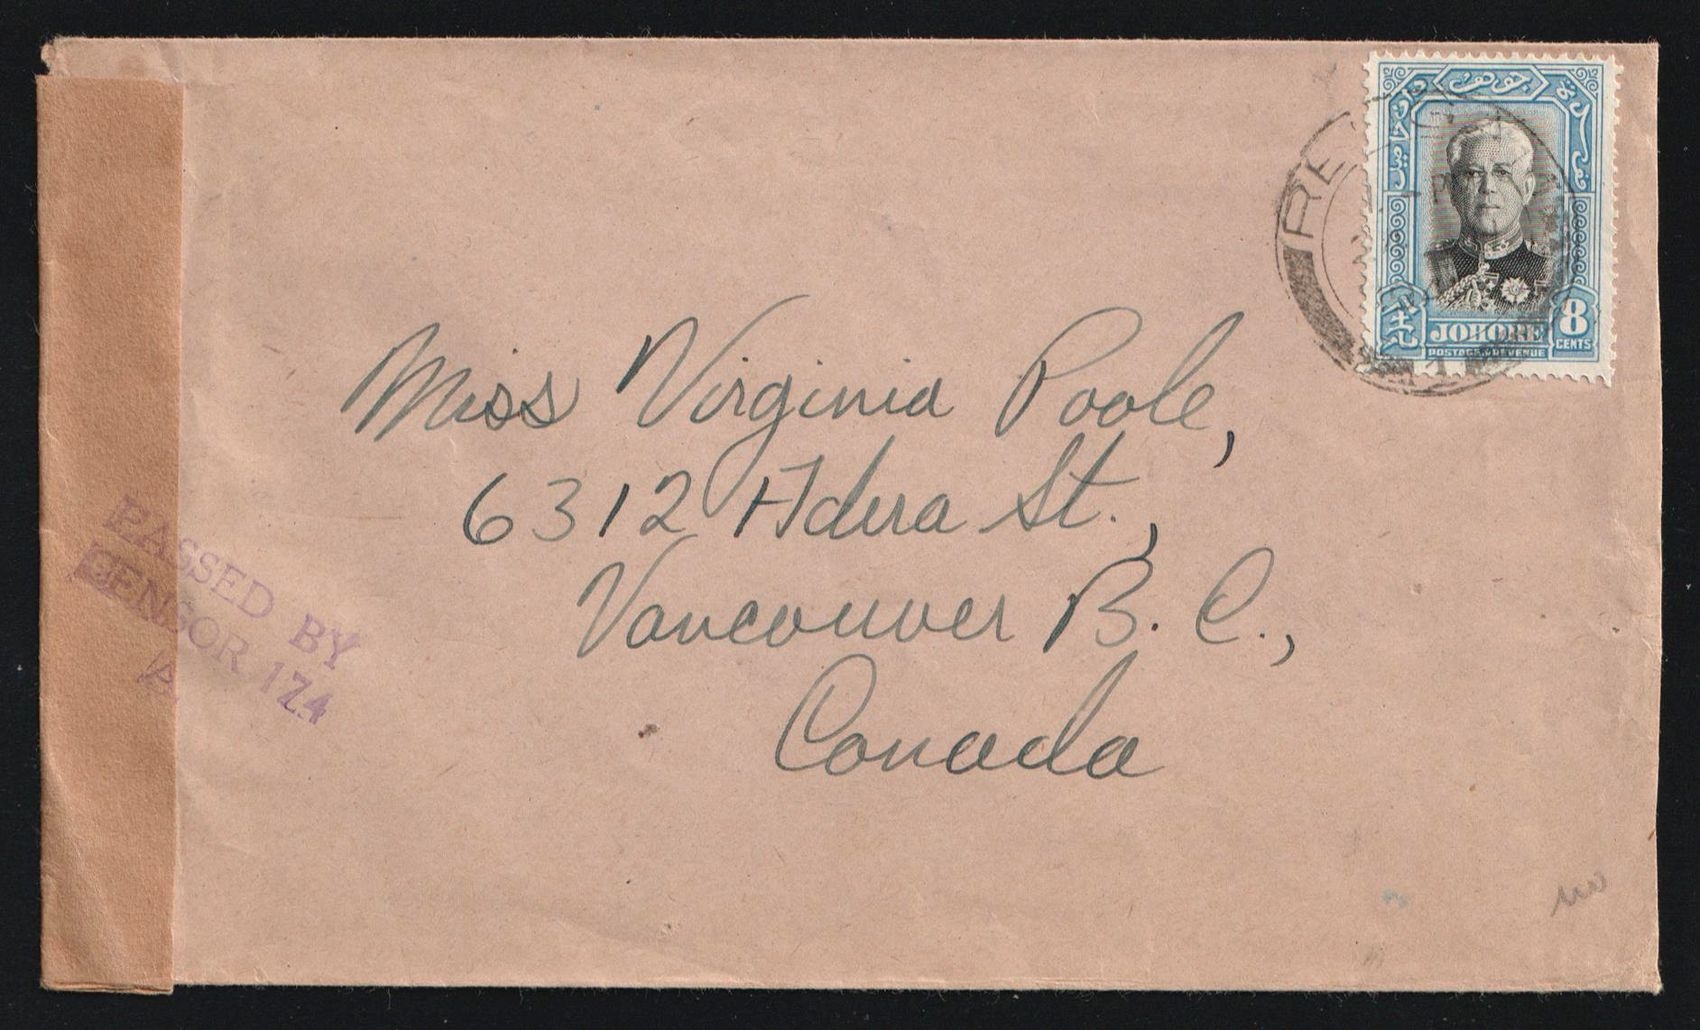 JOHORE
8
CENTS
POSTAGE & REVENUE
Miss Virginia Poole,
6312 Adera St.,
Vancouver B. C.,
Canada
PASSED BY
CENSOR 174
A